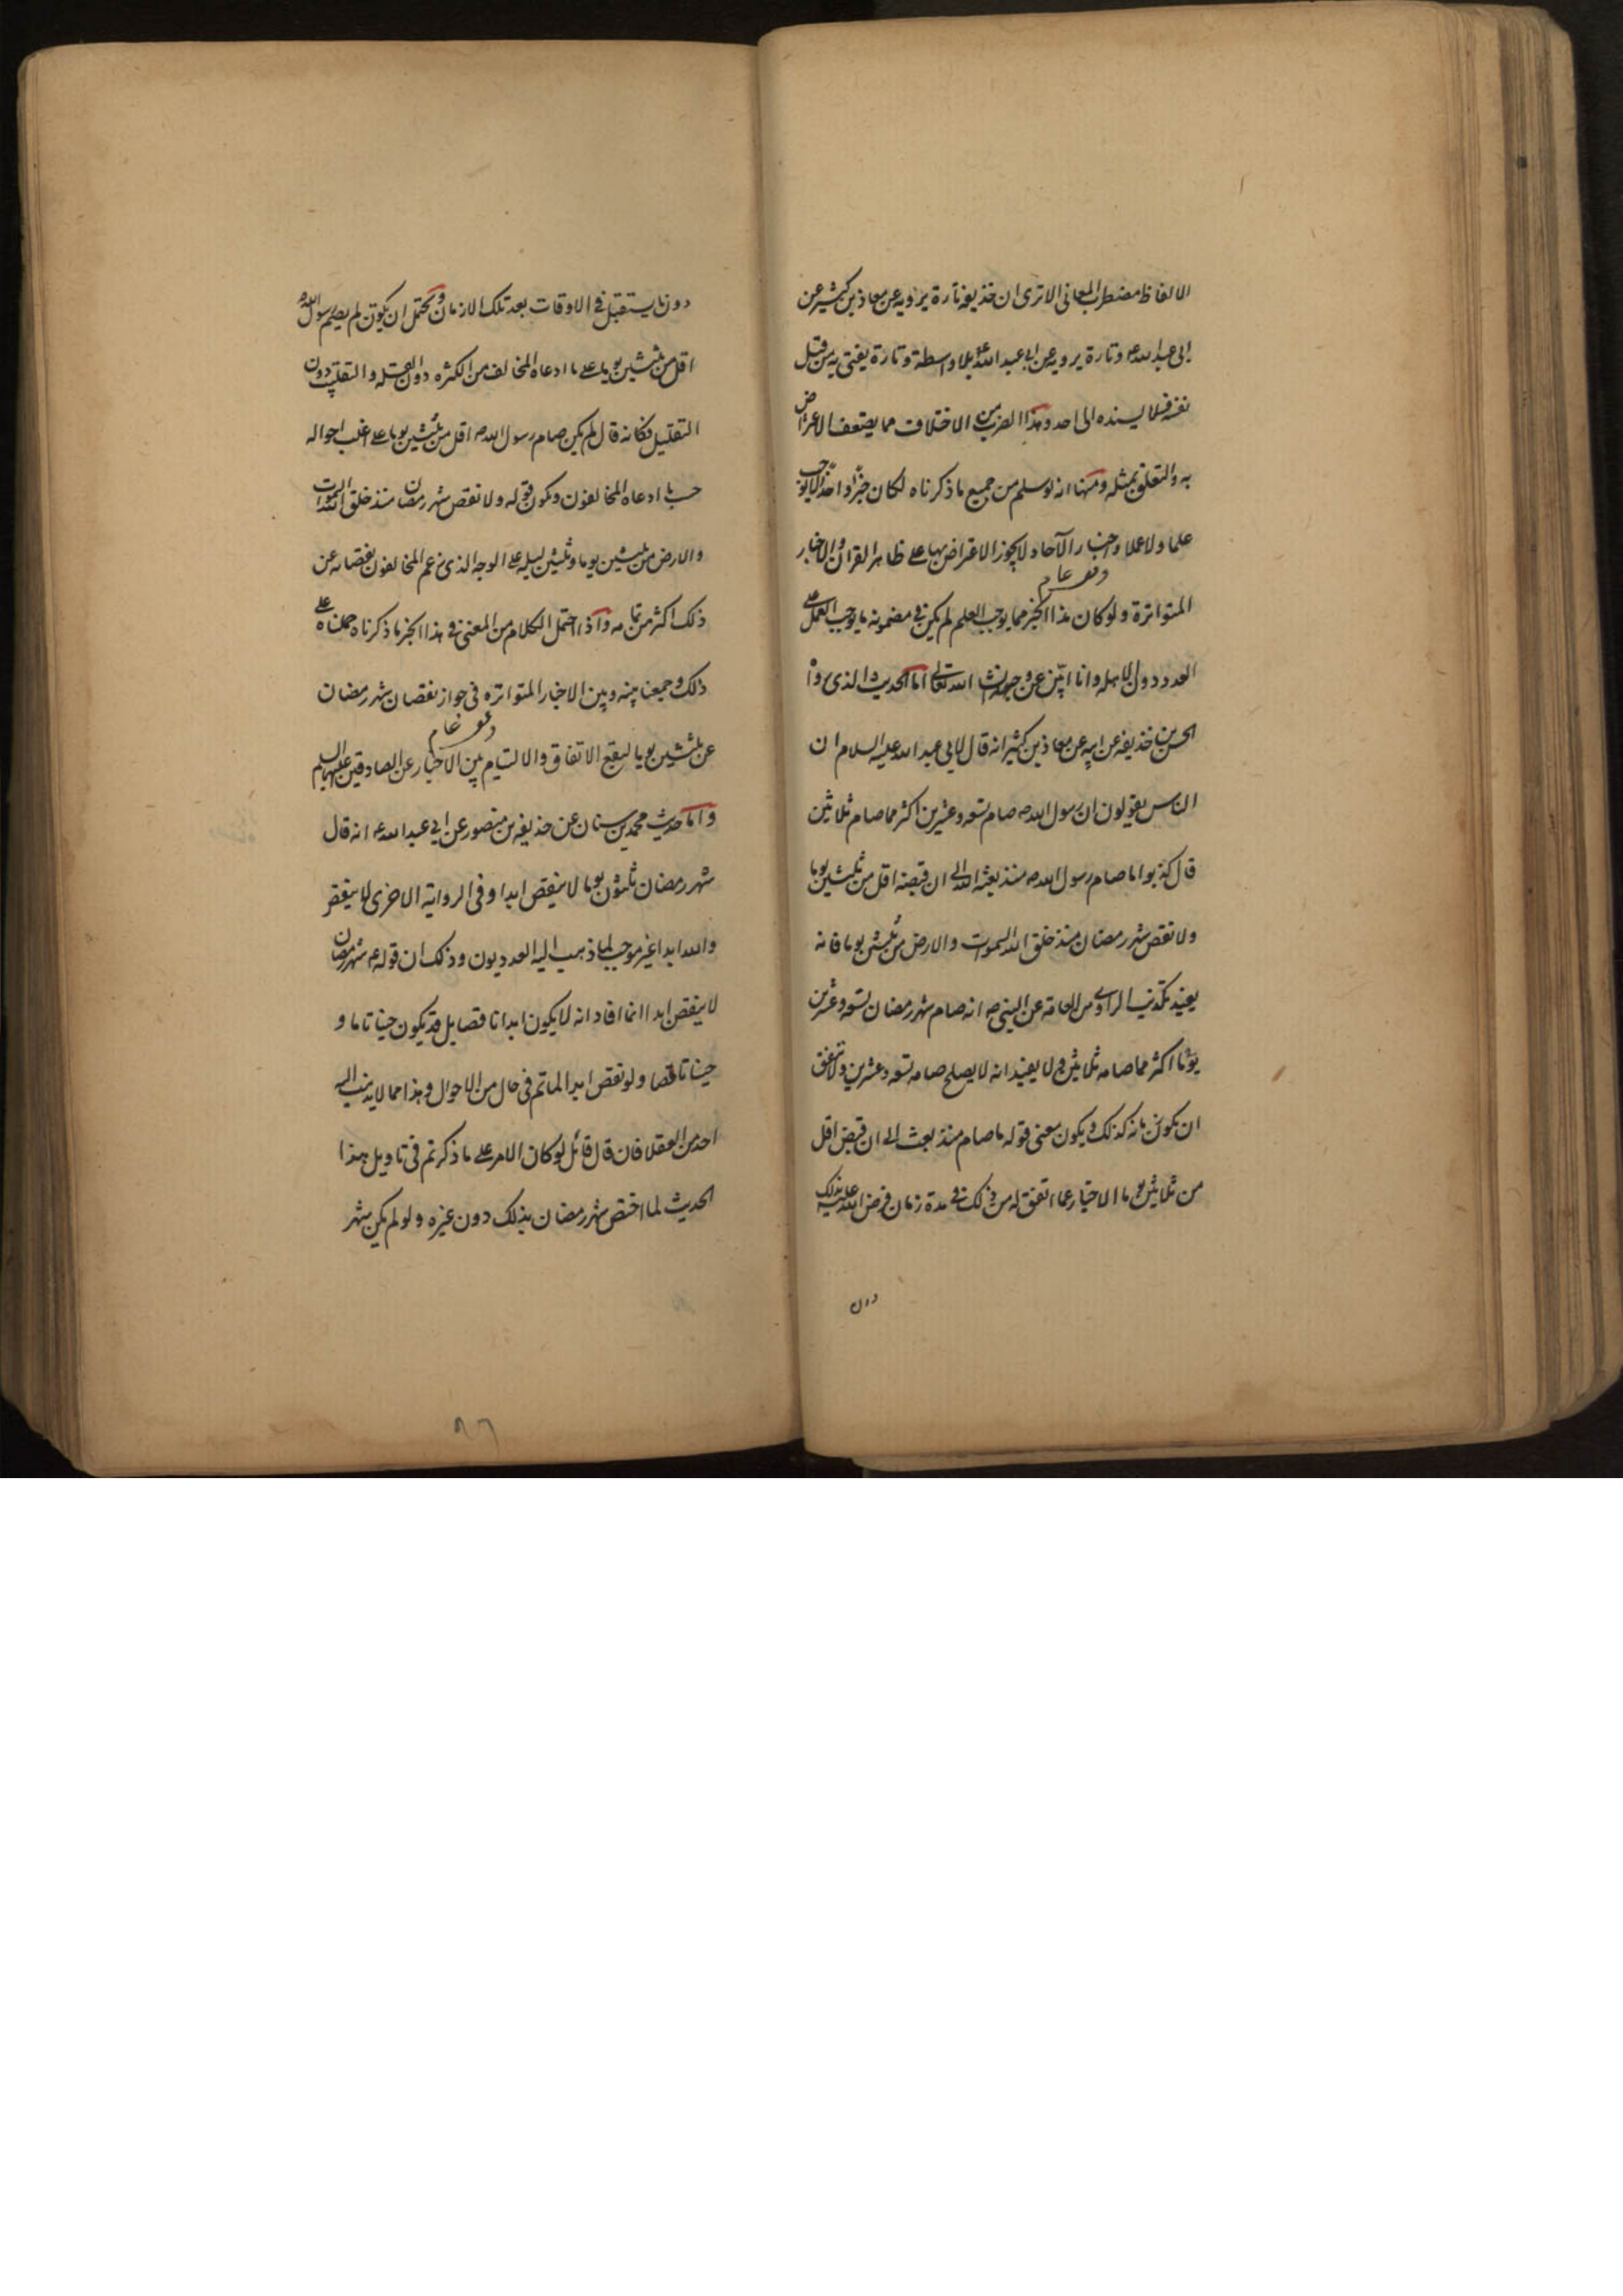 الالفاظ مضطرب المعانى الا ترى ان حذيفة تارة يرويه عن معاذ بن كثير عن
ابى عبد الله ع و تارة يرويه عن ابى عبد الله ع بلا واسطة و تارة يفتى به من قبل
نفسه فلا يسنده الى احد و هذا الضرب من الاختلاف مما يضعف الاعتراض
به و التعلق بمثله و منها انه لو سلم من جميع ما ذكرناه لكان خبرا واحدا لا يوجب
علما ولا عملا و اخبار الآحاد لا يجوز الاعتراض بها على ظاهر القرآن و الاخبار
المتواترة و لو كان هذا الخبر مما يوجب العلم لم يكن فى مضمونه ما يوجب العمل على
العدد دون الاهلة و انا ابين عن وجهه انشا الله تعالى اما الحديث الذى رواه
الحسن بن حذيفة عن ابيه عن معاذ بن كثير انه قال لابى عبد الله عليه السلام ان
الناس يقولون ان رسول الله ص صام تسعة و عشرين اكثر مما صام ثلاثين
قال كذبوا ما صام رسول الله ص منذ بعثه الله الى ان قبضه اقل من ثلثين يوما
ولا نقص شهر رمضان منذ خلق الله السموات و الارض من ثلثين يوما فانه
يفيد تكذيب الراوى من العامة عن النبى ص انه صام شهر رمضان تسعة و عشرين
يوما اكثر مما صامه ثلاثين و لا يفيد انه لا يصلح صامه تسعة و عشرين ولا يتفق
ان يكون زمانه كذلك و يكون معنى قوله ما صام منذ بعث الى ان قبض اقل
من ثلاثين يوما الاخبار عما اتفق له من ذلك فى مدة زمان فرض الله عليه ذلك
دون
دون ما يستقبل فى الاوقات بعد تلك الازمان و يحتمل ان يكون لم يصم رسول الله ص
اقل من ثلثين يوما على ما ادعاه المخالف من الكثرة دون القلة و التغليب دون
التقليل فكانه قال لم يكن صام رسول الله ص اقل من ثلثين يوما على اغلب احواله
حسب ما ادعاه المخالفون و يكون قوله ولا نقص شهر رمضان منذ خلق الله السموات
و الارض من ثلثين يوما و ثلثين ليله على الوجه الذى زعم المخالفون نقصانه عن
ذلك اكثر من تمامه و اذا احتمل الكلام من المعنى فى هذا الخبر ما ذكرناه حملناه على
ذلك و جمعنا بينه و بين الاخبار المتواتره فى جواز نقصان شهر رمضان
عن ثلثين يوما ليقع الاتفاق و الالتيام بين الاخبار عن الصادقين عليهم السلم
و اما حديث محمد بن سنان عن حذيفه بن منصور عن ابى عبد الله ع انه قال
شهر رمضان ثلثون يوما لا ينقص ابدا و فى الرواية الاخرى لا ينقص
و الله ابدا غير موجب لما ذهب اليه العدديون و ذلك ان قوله ع شهر رمضان
لا ينقص ابدا انما افاد انه لا يكون ابدا ناقصا بل قد يكون حينا تاما و
حينا ناقصا و لو نقص ابدا لما تم فى حال من الاحوال و هذا مما لا يذهب اليه
احد من العقلا فان قال قائل لو كان الامر على ما ذكرتم فى تاويل هذا
الحديث لما اختص شهر رمضان بذلك دون غيره و لو لم يكن شهر